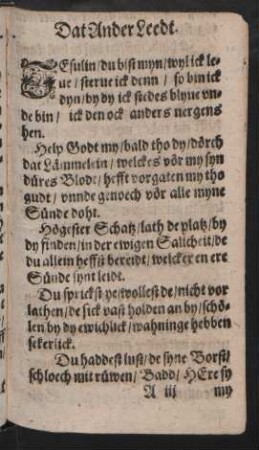 Dat Ander Leedt.
JEsulin/ du bist myn/ wyl ick le-
ue/ sterue ick denn/ so bin ick
dyn/ by dy ick stedes blyue vn-
de bin/ ick den ock anders nergens
hen.
Help Godt my/ bald tho dy/ dörch
dat Lämmelein/ welckes vör my syn
düres Blodt/ hefft vorgaten my tho
gudt/ vnnde genoech vör alle myne
Sünde doht.
Högester Schatz/ lath de platz/ by
dy finden/ in der ewigen Salicheit/ de
du allein heffst bereidt/ welcker en ere
Sünde synt leidt.
Du sprickst ye/ wollest de/ nicht vor
lathen/ de sick vast holden an dy/ schö-
len by dy ewichlick/ wahninge hebben
sekerlick.
Du haddest lust/ de syne Borst/
schloech mit rüwen/ Badd/ HEre sy
A iij my